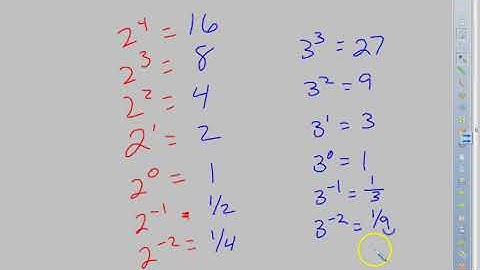 2⁴ = 16
2³ = 8
2² = 4
2¹ = 2
2⁰ = 1
2⁻¹ = 1/2
2⁻² = 1/4
3³ = 27
3² = 9
3¹ = 3
3⁰ = 1
3⁻¹ = 1/3
3⁻² = 1/9